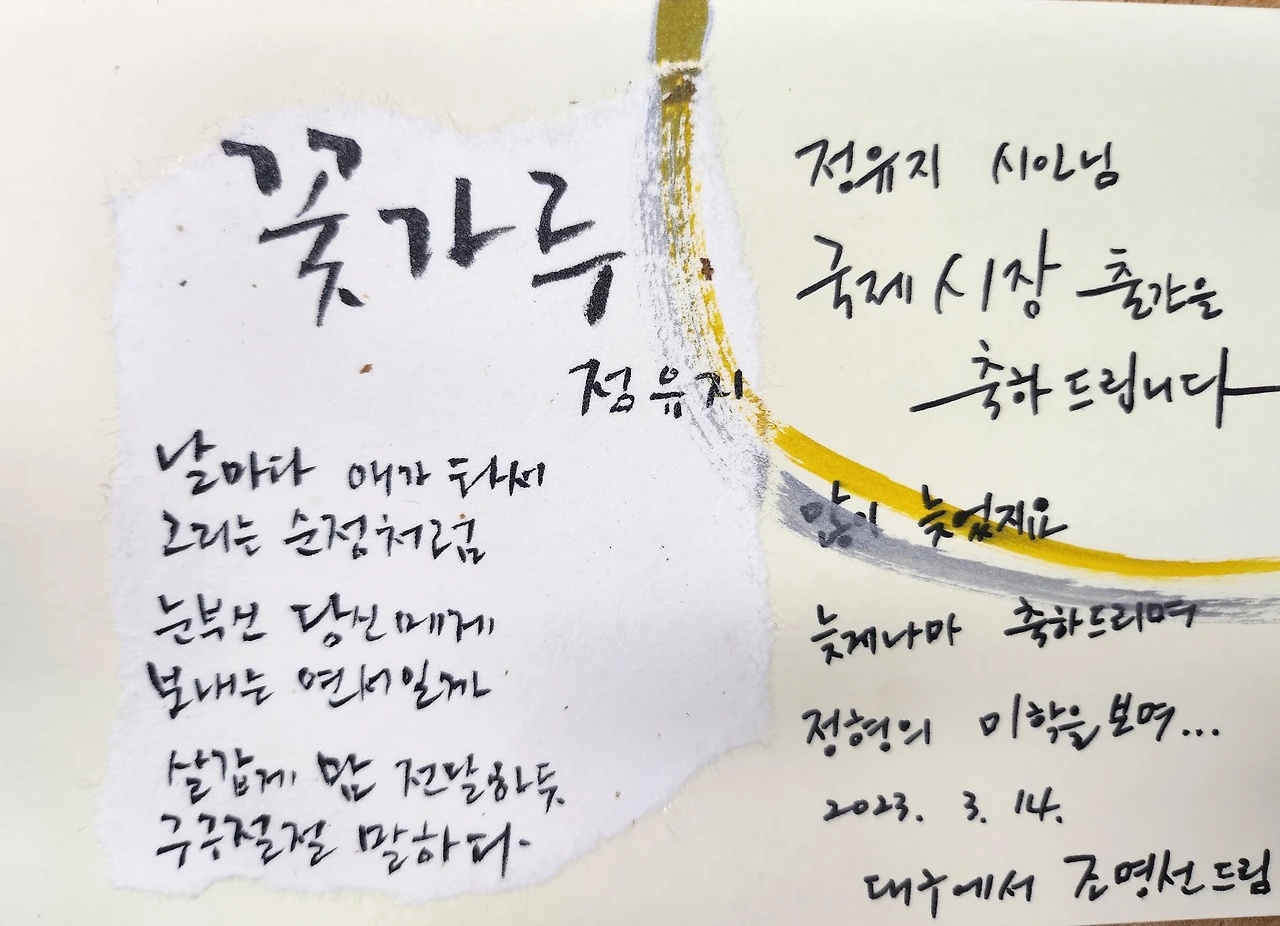 꽃가루
정유지
날마다 애가 타서
그리는 순정처럼
눈부신 당신에게
보내는 연서일까
살갑게 맘 전달하듯
구구절절 말하다.
정유지 시인님
국제시장 출간을
축하드립니다
많이 늦었지요
늦게나마 축하드리며
정형의 미학을 보며...
2023. 3. 14.
대구에서 조명선 드림